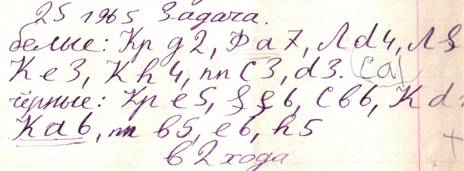 25 1965 Задача.
белые: Кр g2, Ф a7, Л d4, Л f
К e3, К h4, пп c3, d3. Ca1
чёрные: Кр e5, С b6, К d
К a6, пп b5, e6, h5
в 2 хода